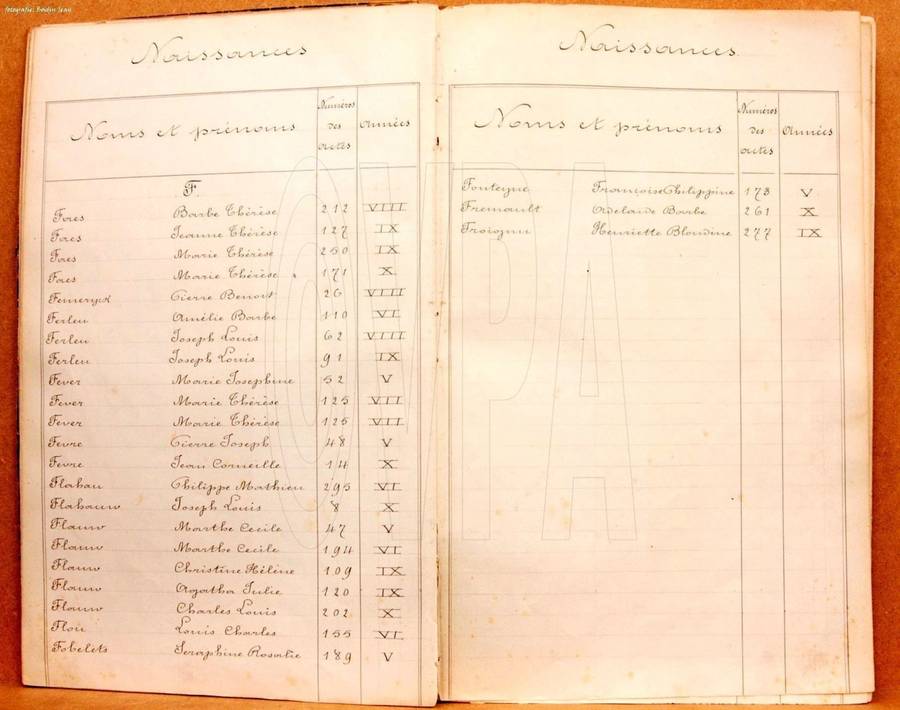 fotografie: Boidin Jean
Naissances
Noms et prénoms Numéros des actes Années
F
Faes Barbe Thérèse 212 VIII
Faes Jeanne Thérèse 127 IX
Faes Marie Thérèse 250 IX
Faes Marie Thérèse 171 X
Femeryck Pierre Benoit 26 VIII
Ferleu Amélie Barbe 110 VI
Ferleu Joseph Louis 62 VIII
Ferleu Joseph Louis 91 IX
Fever Marie Josephine 52 V
Fever Marie Thérèse 125 VII
Fever Marie Thérèse 125 VII
Fevre Pierre Joseph 48 V
Fevre Jean Corneille 14 X
Flahau Philippe Mathieu 295 VI
Flahauw Joseph Louis 8 X
Flauw Marthe Cecile 47 V
Flauw Marthe Cecile 194 VI
Flauw Christine Hélène 109 IX
Flauw Agatha Julie 120 IX
Flauw Charles Louis 202 X
Flou Louis Charles 155 VI
Fobelets Seraphine Rosalie 189 V
Naissances
Noms et prénoms Numéros des actes Années
Fonteyne Françoise Philippine 173 V
Fremault Adelaide Barbe 261 X
Henriette Blondine 277 IX
OVPA